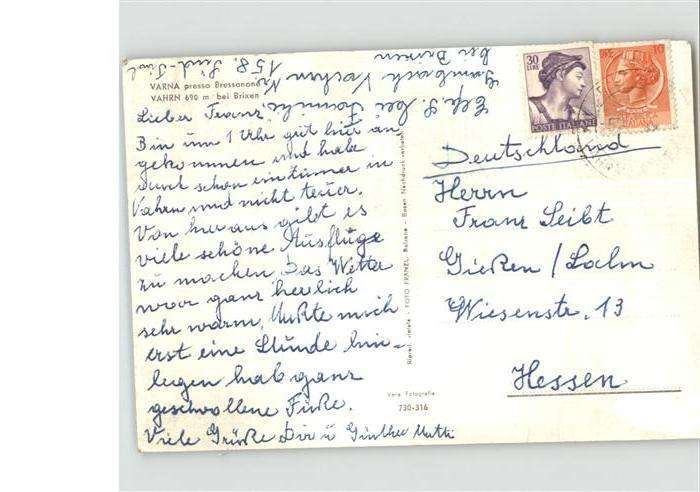 VARNA presso Bressanone
VAHRN 690 m bei Brixen
bei Familie
Kochen Nr.
158. Süd-Tirol
bei Brixen
Lieber Franz!
Bin um 1 Uhr gut hier an
gekommen und habe
auch schon ein Zimmer in
Vahrn und nicht teuer.
Von hier aus gibt es
viele schöne Ausflüge
zu machen. Das Wetter
war ganz herrlich
sehr warm. Mußte mich
erst eine Stunde hin-
legen hab ganz
geschwollene Füße.
Viele Grüße Dir u Günther Mutti
Riprod. vietata - FOTO FRANZL Bolzano - Bozen Nachdruck verboten
Vera Fotografia
730-316
30
LIRE
POSTE ITALIANE
10
Deutschland
Herrn
Franz Seibt
Gießen/Lahn
Wiesenstr. 13
Hessen